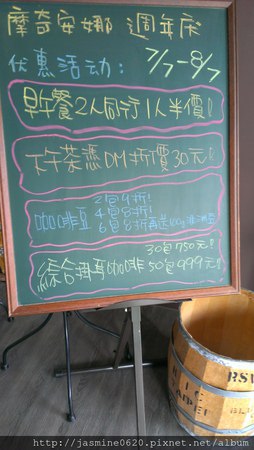 摩奇安娜 週年庆
优惠活动: 7/7-8/7
早午餐2人同行1人半價!
下午茶憑DM折價30元!
咖啡豆
2包9折!
4包8折!
6包8折再送
30包750元!
綜合掛耳咖啡 50包999元!
TAIPEI
BSM
http://jasmine0620.pixnet.net/album